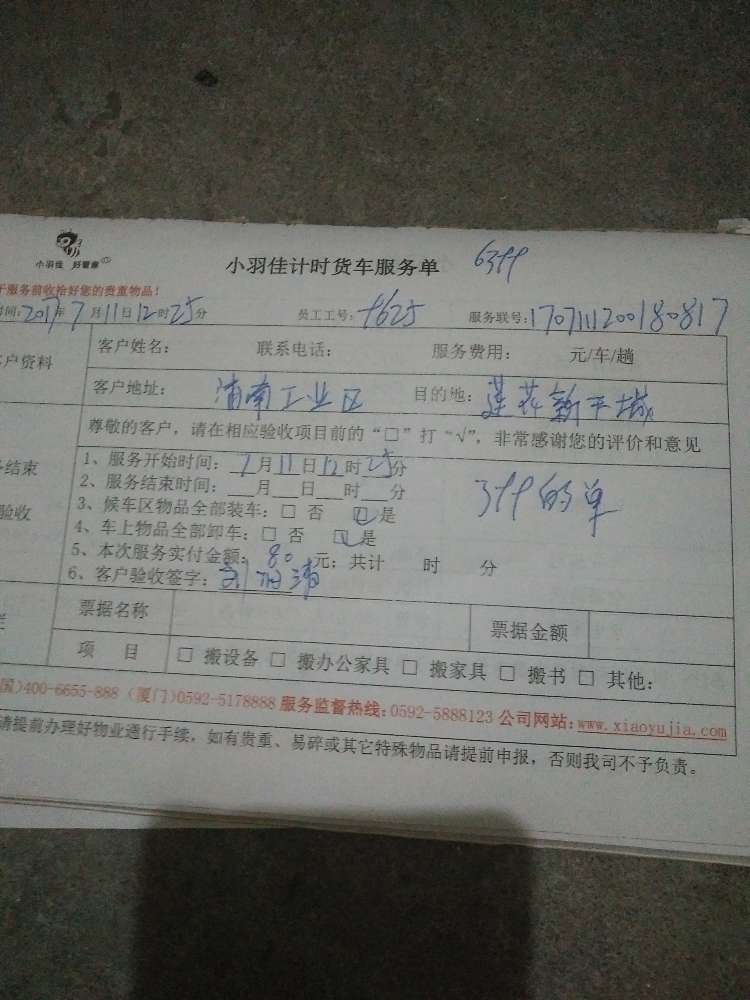 小羽佳 好管家
小羽佳计时货车服务单 6399
于服务前收拾好您的贵重物品!
时间:2017年7月11日12时25分 员工工号:9625 服务联号:170711120018 0817
客户资料 客户姓名: 联系电话: 服务费用: 元/车/趟
客户地址: 浦南工业区 目的地:莲花新平城
尊敬的客户,请在相应验收项目前的“□”打“√”,非常感谢您的评价和意见
结束
验收
1、服务开始时间:7月11日12时25分 399的单
2、服务结束时间:___月___日___时___分
3、候车区物品全部装车:□ 否 □是
4、车上物品全部卸车:□ 否 □是
5、本次服务实付金额:80元;共计 时 分
6、客户验收签字:
票据名称 票据金额
项 目 □ 搬设备 □ 搬办公家具 □ 搬家具 □ 搬书 □ 其他:
国)400-6655-888 (厦门)0592-5178888 服务监督热线:0592-5888123 公司网站:www.xiaoyujia.com
请提前办理好物业通行手续,如有贵重、易碎或其它特殊物品请提前申报,否则我司不予负责。